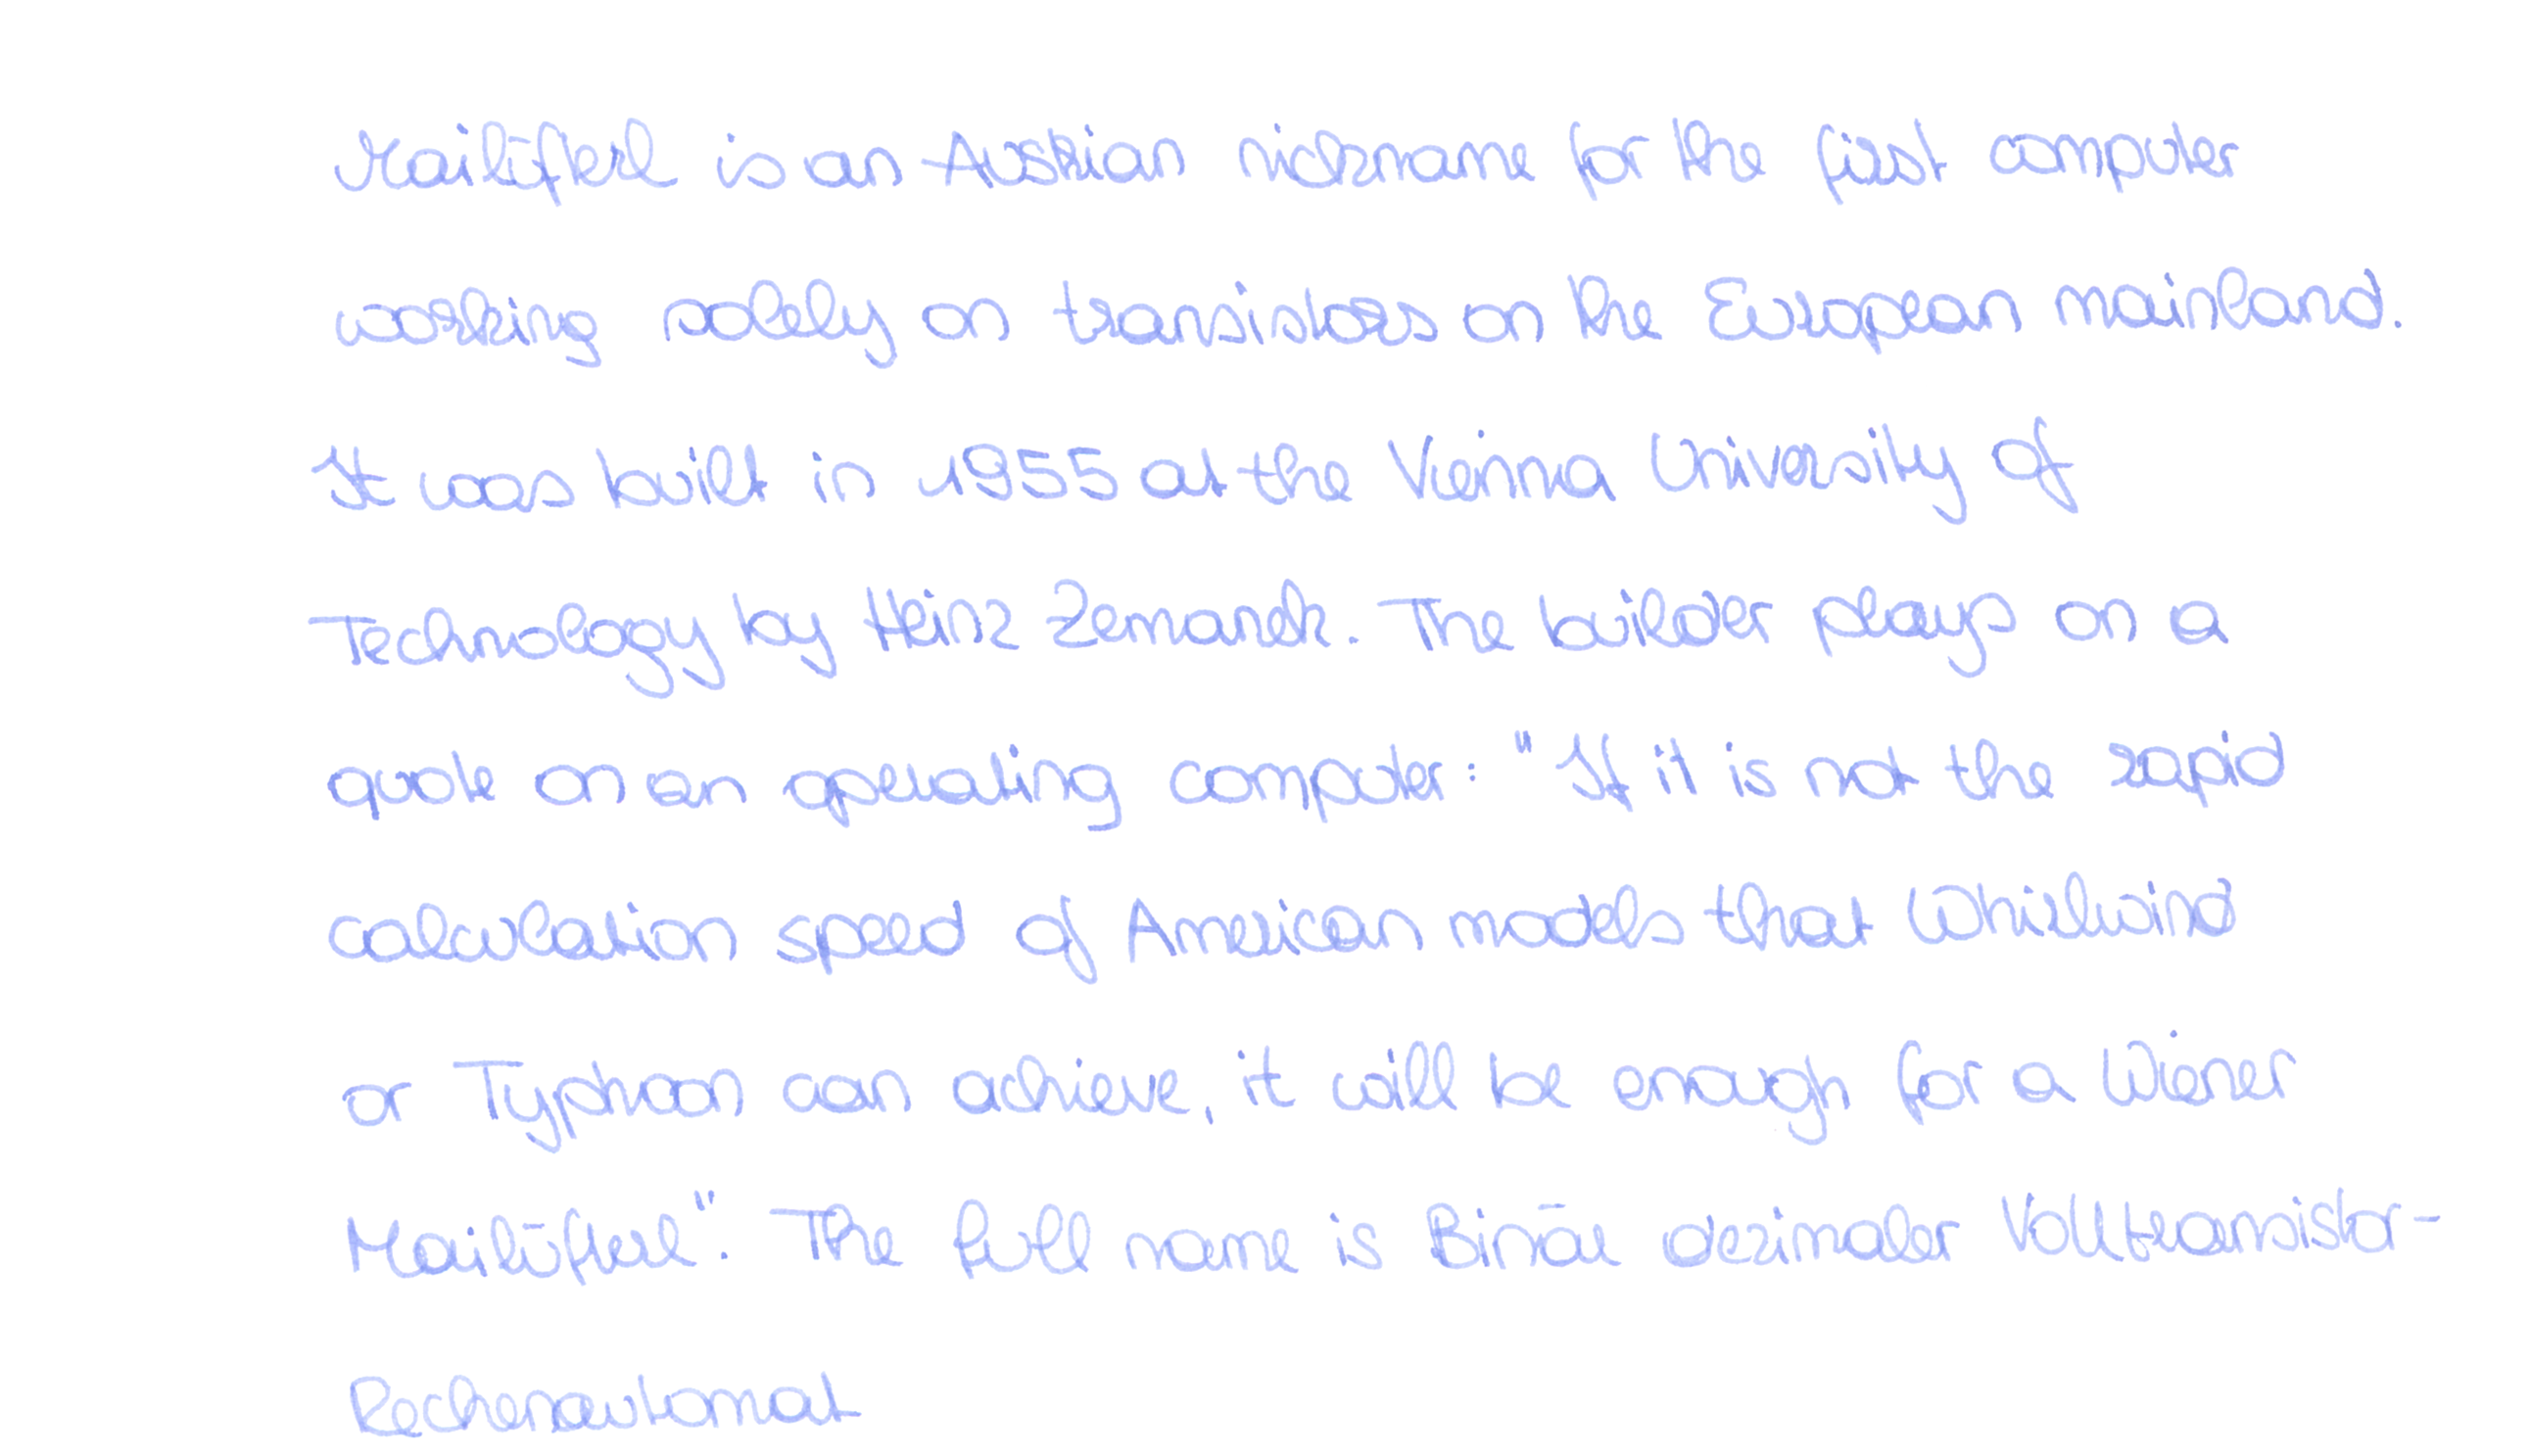 Mailüfterl is an Austrian nickname for the first computer
working solely on transistors on the European mainland.
It was built in 1955 at the Vienna University of
Technology by Heinz Zemanek. The builder plays on a
quote on an operating computer: "If it is not the rapid
calculation speed of American models that Whirlwind
or Typhoon can achieve, it will be enough for a Wiener
Mailüfterl". The full name is Binär dezimaler Volltransistor-
Rechenautomat